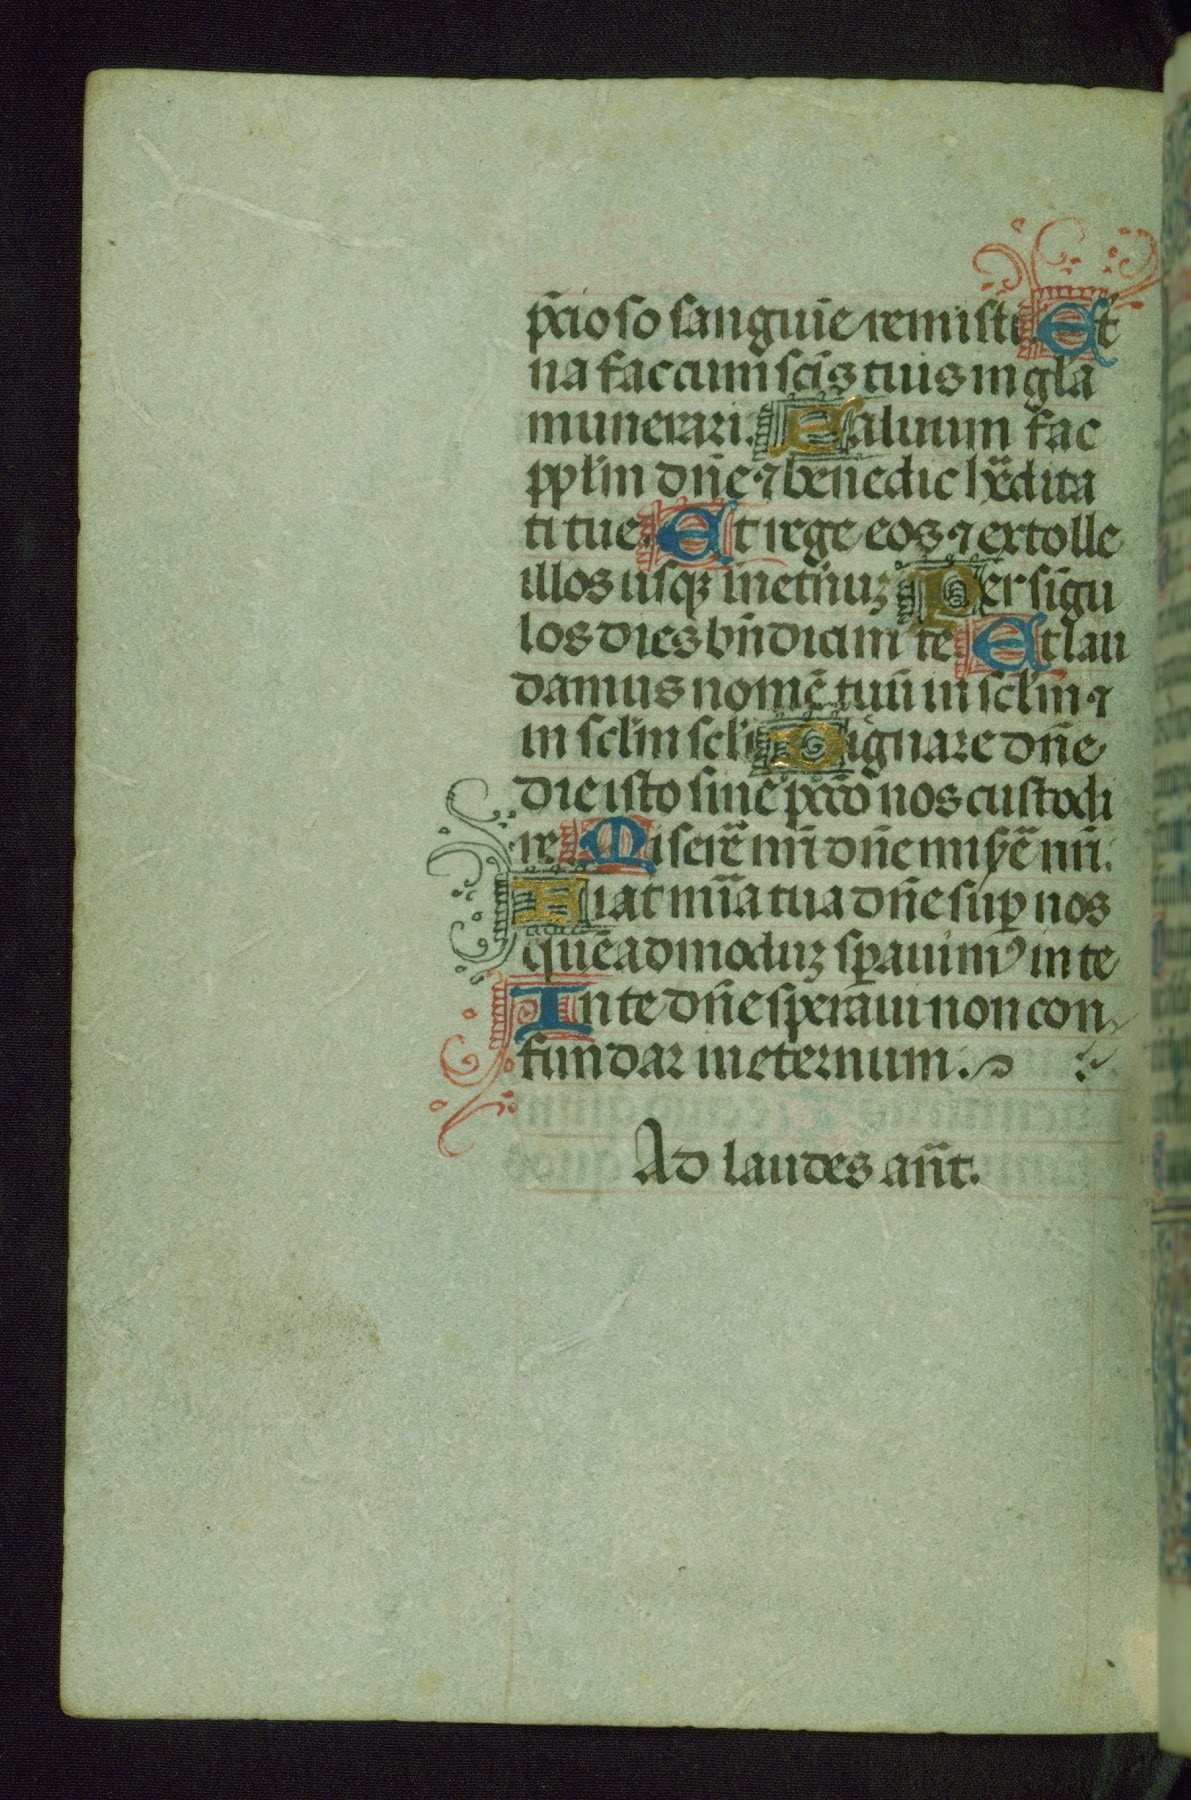 p̄cioso sanguīe remisti Et
na fac cum sc̄is tuis in gl̄a
munerari. Saluum fac
pplm̄ dn̄e ⁊ benedic hēdita
ti tue. Et rege eos ⁊ extolle
illos usqꝫ in et̄nuꝫ Per sīgu
los dies bn̄dicim te. Et lau
damus nomē tuū in scl̄m ⁊
in scl̄m scl̄i Dignare dn̄e
die isto sine pctō nos custodi
re Miserē nr̄i dn̄e miserē nr̄i.
Fiat mīa tua dn̄e suꝑ nos
quēadmoduꝫ sꝑauimꝰ in te
In te dn̄e speraui non con
fundar in eternum.
Ad laudes an̄t.